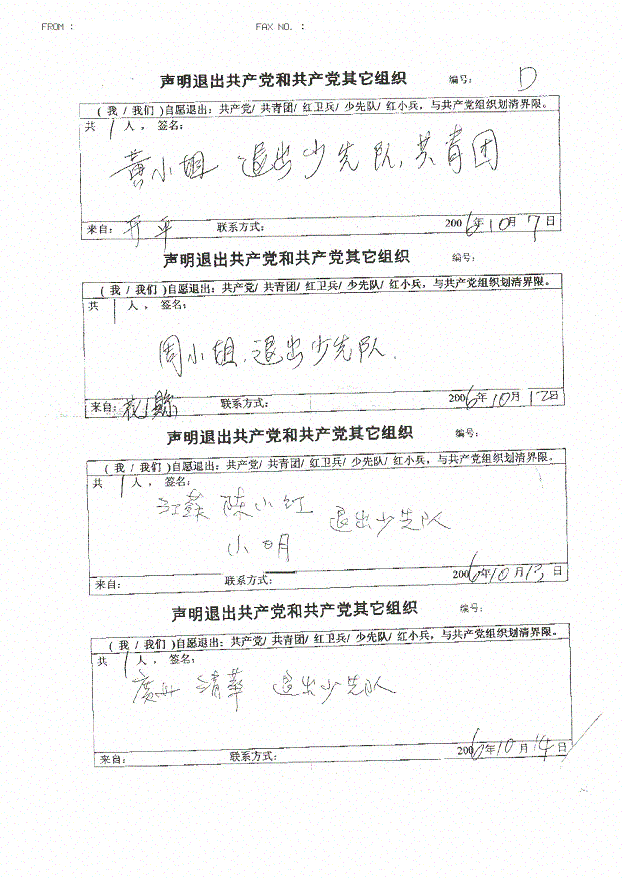 FROM : FAX NO. :
声明退出共产党和共产党其它组织 编号: D
( 我 / 我们 )自愿退出: 共产党/ 共青团/ 红卫兵/ 少先队/ 红小兵, 与共产党组织划清界限。
共 1 人, 签名:
黄小姐 退出少先队, 共青团
来自: 开平 联系方式: 2006年10月7日
声明退出共产党和共产党其它组织 编号:
( 我 / 我们 )自愿退出: 共产党/ 共青团/ 红卫兵/ 少先队/ 红小兵, 与共产党组织划清界限。
共 1 人, 签名:
周小姐, 退出少先队.
来自: 花縣 联系方式: 2006年10月12日
声明退出共产党和共产党其它组织 编号:
( 我 / 我们 )自愿退出: 共产党/ 共青团/ 红卫兵/ 少先队/ 红小兵, 与共产党组织划清界限。
共 1 人, 签名:
江蘇 陈小红 退出少先队
小明
来自: 联系方式: 2006年10月13日
声明退出共产党和共产党其它组织 编号:
( 我 / 我们 )自愿退出: 共产党/ 共青团/ 红卫兵/ 少先队/ 红小兵, 与共产党组织划清界限。
共 1 人, 签名:
廣州 清華 退出少先队
来自: 联系方式: 2006年10月14日